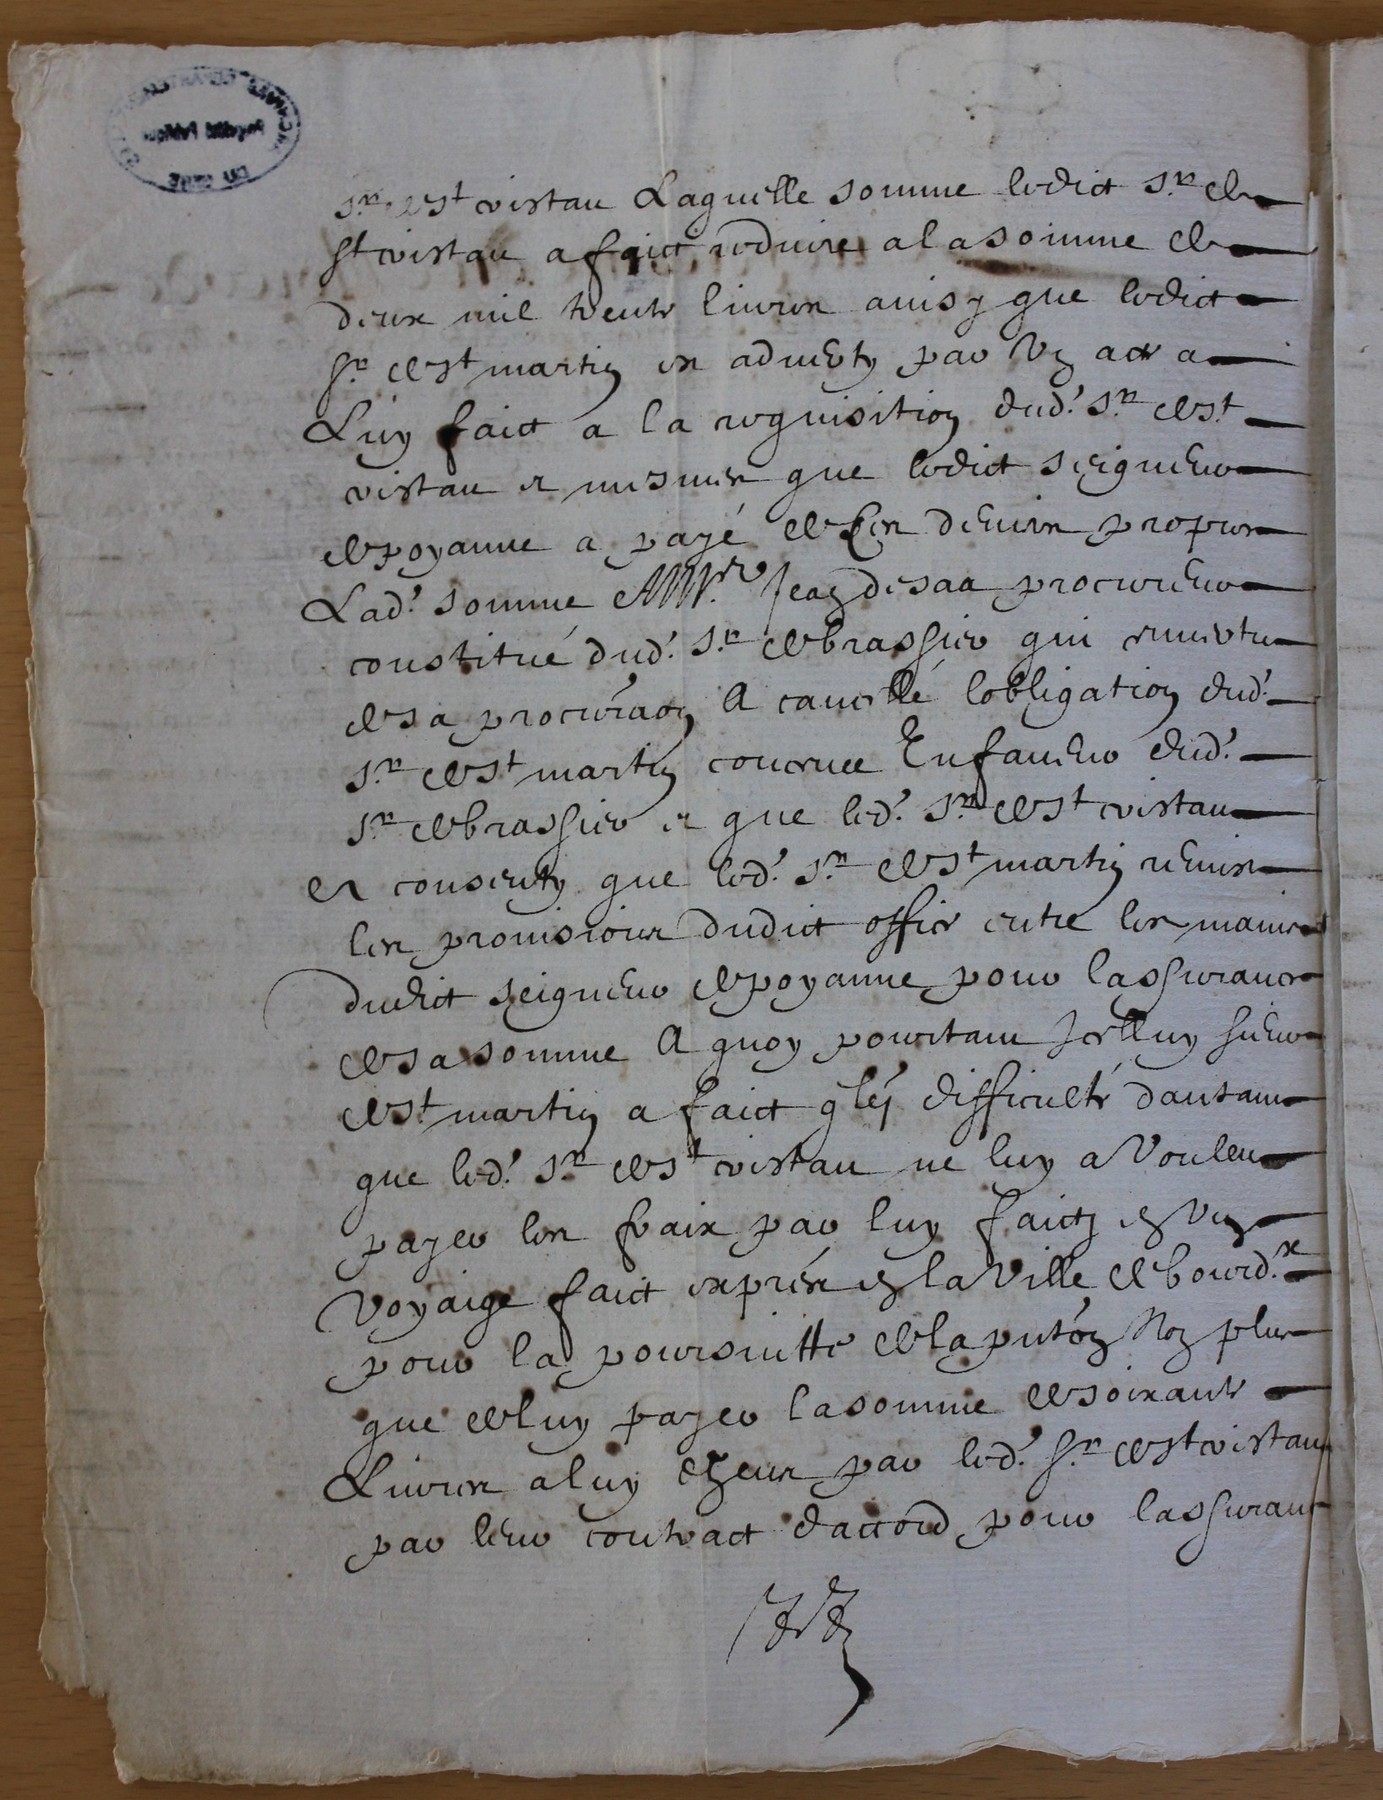 sr. de st cristau Laquelle somme ledict sr. de
st cristau a faict reduire a la somme de
deux mil trente livres ainsy que ledict
sr. de st martin est adverty par un acte a
Luy faict a la requisition dud. sr. de st
cristau et mesmes que ledict seigneur
de poyanne a payé de ses deniers propres
Lad. somme a Mre. Jean desaa procureur
constitué dud. sr. de brassier qui en vertu
de sa procuraon A cancellé lobligation dud.
sr. de st martin conceue En faveur dud.
sr. de brassier et que led. sr. de st cristau
et consenty que led. sr. de st martin remist
les provisions dudict office entre les mains
dudict seigneur de poyanne pour lassurance
de sa somme A quoy pourtant Icelluy sieur
de st martin a faict qlq difficulté dautant
que led. sr. de st cristau ne luy a Voulleu
payer les fraix par luy faictz en un
Voyaige faict exprés en la Ville de bourd.x
pour la poursuitte de la pntaon Non plus
que de luy payer la somme de soixante
Livres a luy deues par led. sr. de st cristau
par leur contract daccord pour lassuran